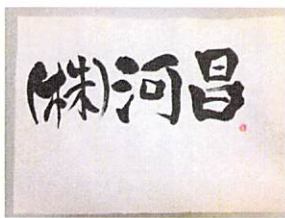 (株)河昌